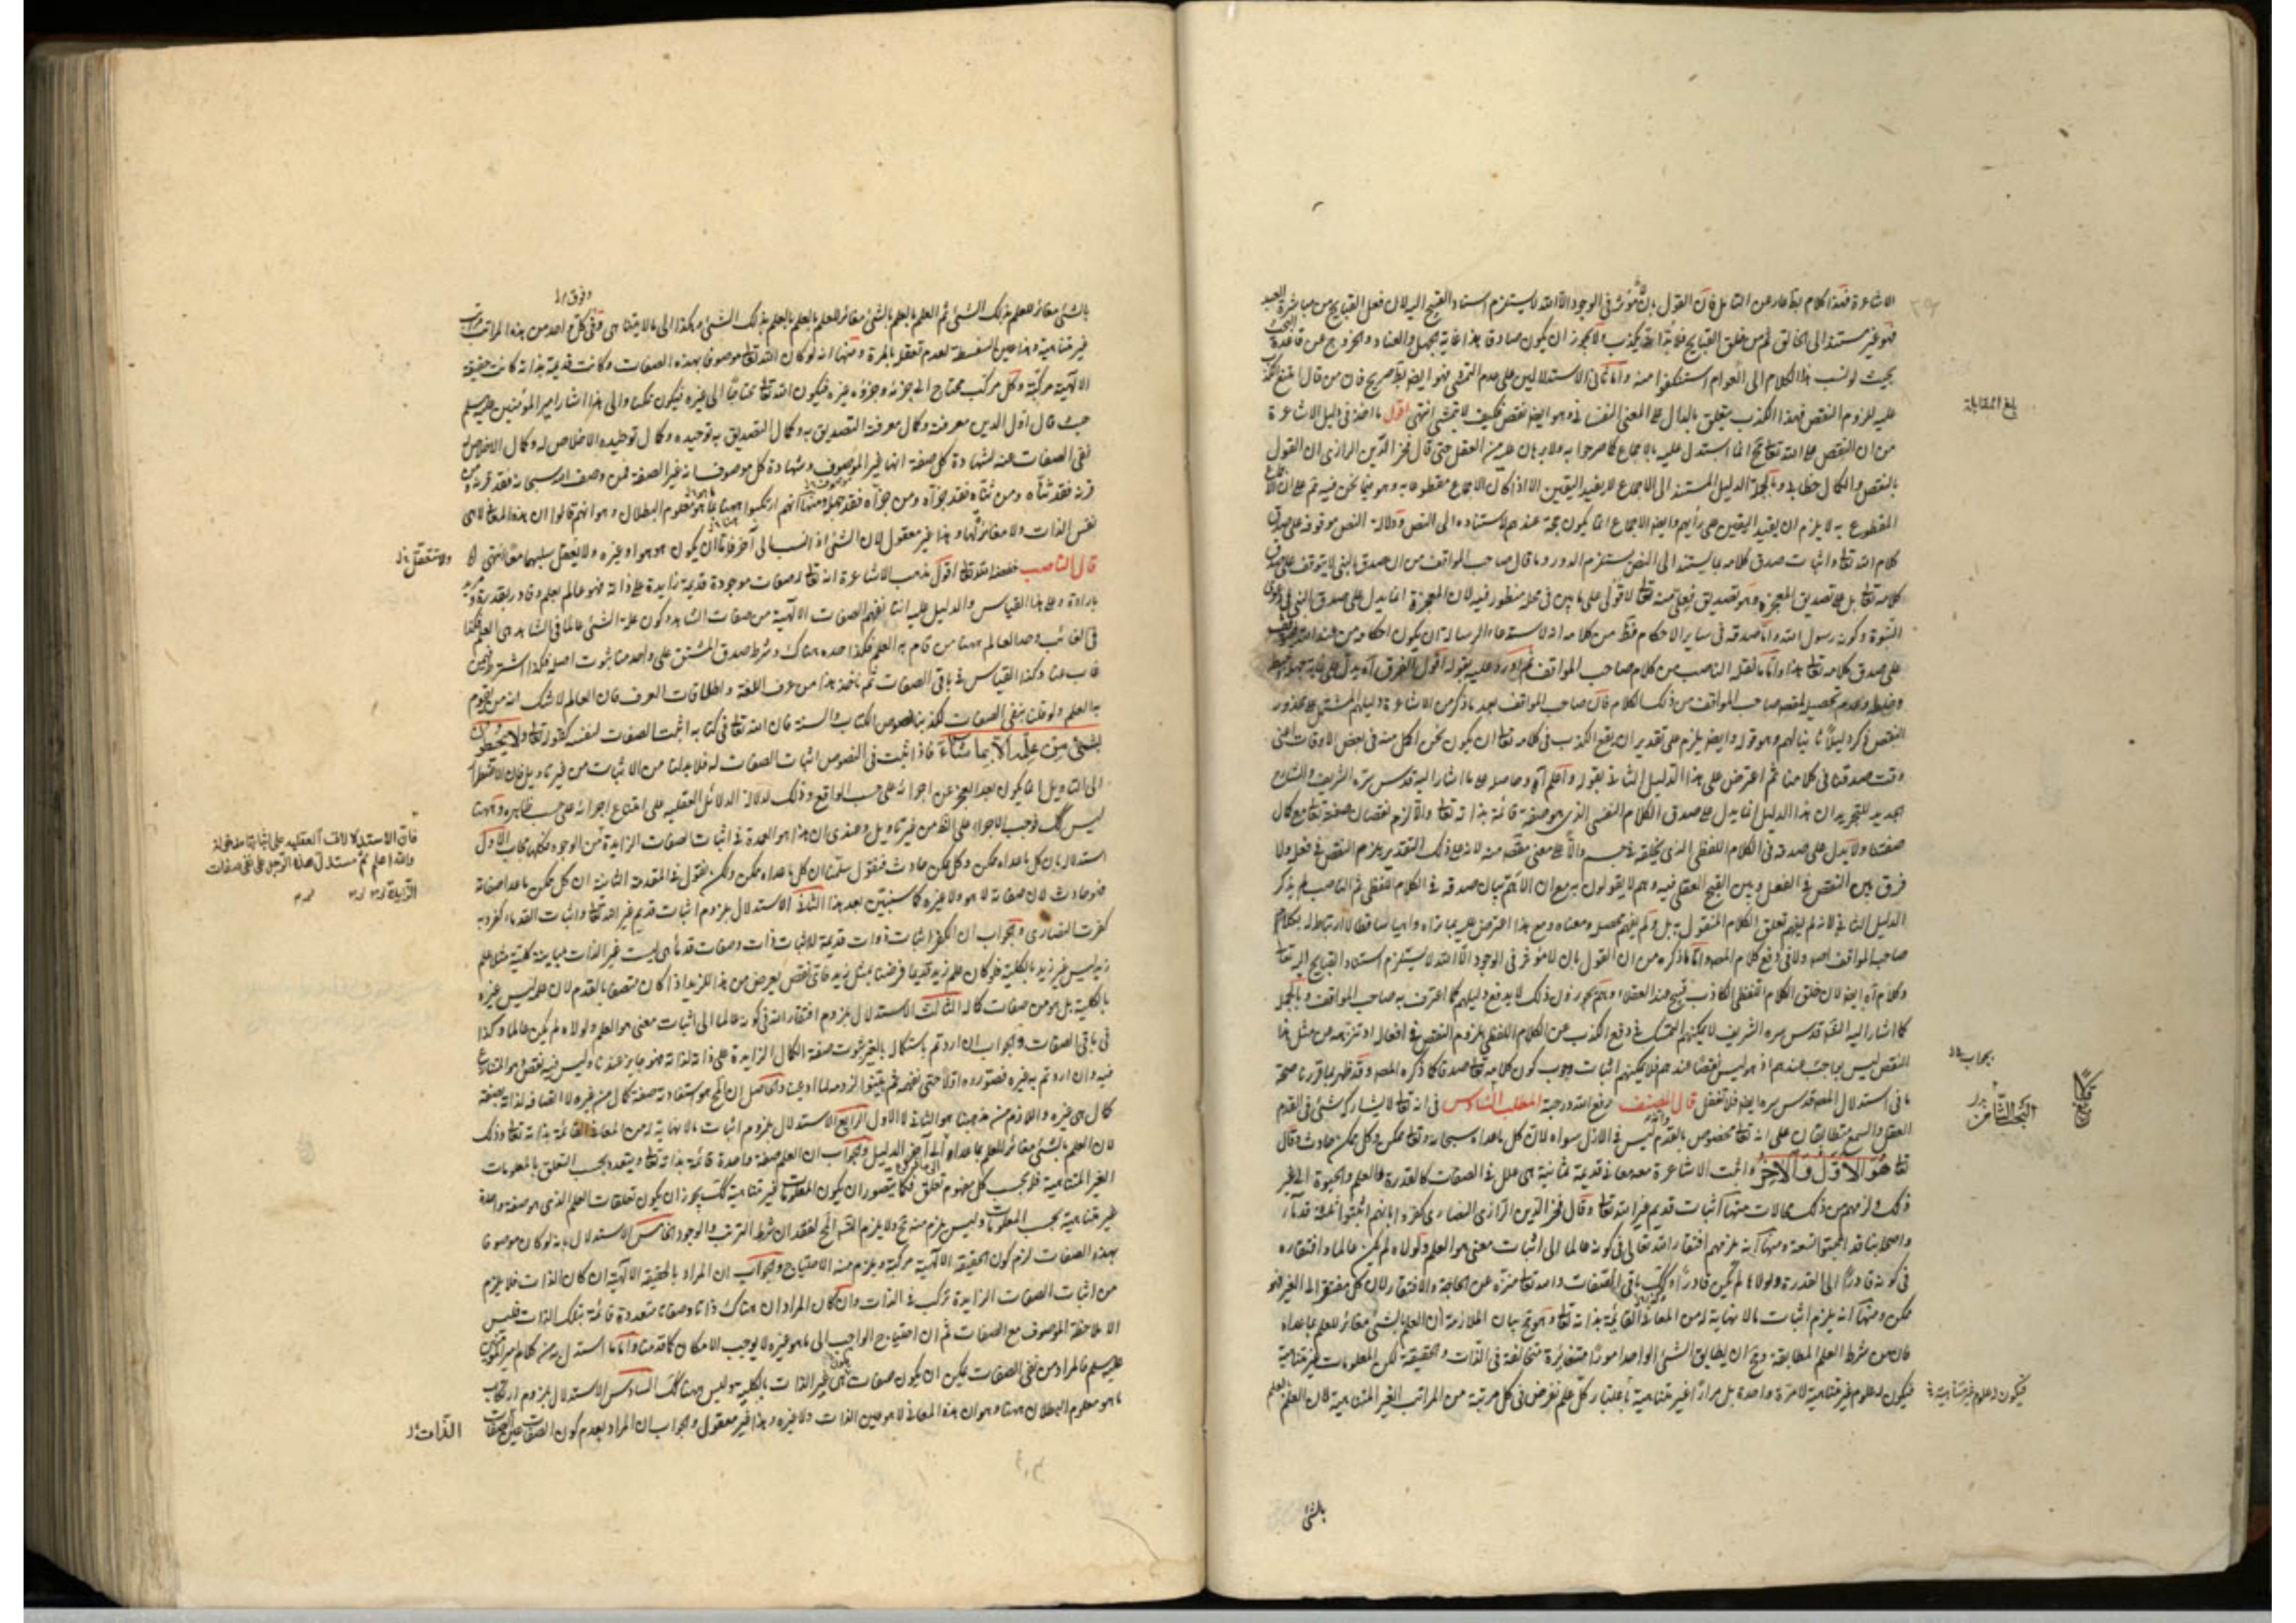 الاشاعرة فهذا كلام بط عار عن التأمل فان القول بان لا مؤثر في الوجود الا الله لا يستلزم اسناد القبيح اليه لان فعل القبايح من مباشرة العبد
فهو غير مستند الى الخالق ثم من خلق القبايح فلا بد انه يكذب ولا يجوز ان يكون صادقا هذا غاية الجهل والعناد والخروج عن قاعدة البحث
بحيث لو نسب هذا الكلام الى العوام استنكفوا منه واما ثاني الاستدلالين على عدم التمشي فهو ايض بط صريح فان من قال امتنع الكذب
عليه للزوم النقص فهذا الكذب يتعلق بالدال على المعنى النفساني وهو ايضا نقص فكيف لا يتمشى انتهى اقول ما اخذه في دليل الاشاعرة
من ان النقص على الله تعالى مح انما استدل عليه بالاجماع كما صرحوا به ولا برهان عليه من العقل حتى قال فخر الدين الرازي ان القول
بالنقص والكمال خطابي وبالجملة الدليل المستند الى الاجماع لا يفيد اليقين الا اذا كان الاجماع مقطوعا به وهو فيما نحن فيه مم على ان الاجماع
المقطوع به لا يلزم ان يفيد اليقين على رأيهم وايضا الاجماع انما يكون حجة عندهم لاستناده الى النص ودلالة النص موقوفة على صدق
كلام الله تعالى واثبات صدق كلامه بما يستند الى النص يستلزم الدور وما قال صاحب المواقف من ان صدق النبي لا يتوقف على صدق
كلامه تعالى بل على تصديق المعجزة وهو تصديق فعلي منه تعالى لا قولي على ما بين في محله منظور فيه لان المعجزة انما يدل على صدق النبي في دعوى
النبوة وكونه رسول الله واما صدقه في ساير الاحكام فقط من كلامه اذ لا يستدعي الرسالة ان يكون احكامه من عند الله
على صدق كلامه تعالى هذا واما ما نقله الناصب من كلام صاحب المواقف ثم اورد عليه بقوله اقول الفرق آه يدل على غاية جهله
وخبط وعدم تحصيل لمقصد صاحب المواقف من ذلك الكلام فان صاحب المواقف بعد ما ذكر من الاشاعرة دليلهم المشتمل على محذور
النقص ذكر دليلا ثانيا لهم وهو قوله وايض يلزم على تقدير ان يقع الكذب في كلامه تعالى ان يكون نحن اكمل منه في بعض الاوقات اعني
وقت صدقنا في كلامنا ثم اعترض على هذا الدليل الثاني بقوله واعلم آه وحاصله على ما اشار اليه قدس سره الشريف والشارح
الجديد للتجريد ان هذا الدليل انما يدل على صدق الكلام النفسي الذي هو صفة قائمة بذاته تعالى والا لزم نقصان صفته تعالى مع كمال
صفتنا ولا يدل على صدقه في الكلام اللفظي الذي يخلقه في جسم دالا على معنى مقصود منه لانه على ذلك التقدير يلزم النقص في فعله ولا
فرق بين النقص في الفعل وبين القبح العقلي فيه وهم لا يقولون به مع ان الاهم بيان صدقه في الكلام اللفظي ثم الناصب لم يذكر
الدليل الثاني لانه لم يفهم تعلق الكلام المنقول به بل ولم يفهم محصله ومعناه ومع هذا اعترض عليه بما تراه واهيا ساقطا لا ارتباط له بكلام
صاحب المواقف اصلا ولا في دفع كلام المصه واما ما ذكره من ان القول بان لا مؤثر في الوجود الا الله لا يستلزم اسناد القبايح اليه تعالى
وكلام آه ايض لان خلق الكلام اللفظي الكاذب قبيح عند العقلاء وهم يجوزون ذلك لا يدفع دليلهم كما اعترف به صاحب المواقف وبالجملة
كما اشار اليه المصه قدس سره الشريف لا يمكنهم التمسك في دفع الكذب عن الكلام اللفظي بلزوم النقص في افعاله او تنزيهه عن مثل هذا
النقص ليس بواجب عندهم اذ هو ليس نقصا عندهم فلا يمكنهم اثبات وجوب كون كلامه تعالى صدقا كما ذكره المصه وقد ظهر بما قررنا صحة
ما في استدلال المصه قدس سره ايض فلا تغفل قال المصنف رفع الله درجته المطلب السادس في انه تعالى لا يشاركه شئ في القدم
العقل والسمع متطابقان على انه تعالى مخصوص بالقدم وانه ليس في الازل سواه لان كل ما عداه سبحانه وتعالى ممكن وكل ممكن حادث وقال
تعالى هُوَ الْاَوَّلُ وَالْاٰخِرُ واثبت الاشاعرة معه معاني قديمة ثمانية هي علل في الصفات كالقدرة والعلم والحيوة الى غير
ذلك ولزمهم من ذلك محالات منها اثبات قديم غير الله تعالى وقال فخر الدين الرازي النصارى كفروا بانهم اثبتوا ثلثة قدماء
واصحابنا قد اثبتوا تسعة ومنها انه يلزمهم افتقار الله تعالى في كونه عالما الى اثبات معنى هو العلم ولولاه لم يكن عالما وافتقاره
في كونه قادرا الى القدرة ولولاها لم يكن قادرا وكذلك باقي الصفات والله تعالى منزه عن الحاجة والافتقار لان كل مفتقر الى الغير فهو
ممكن ومنها انه يلزم اثبات ما لا نهاية له من المعاني القائمة بذاته تعالى وهو مح بيان الملازمة ان العلم بالشئ مغائر للعلم بما عداه
فان من شرط العلم المطابقة ومح ان يطابق الشئ الواحد امورا متغايرة متخالفة في الذات والحقيقة لكن المعلومات غير متناهية
فيكون له علوم غير متناهية لا مرة واحدة بل مرارا غير متناهية باعتبار كل علم نفرض في كل مرتبة من المراتب الغير المتناهية لان العلم بالعلم
بالشئ
بلغ المقابلة
بجواب
البحث الثامن
فيكون له علوم غير متناهية
وفوق
بالشئ مغائر للعلم بذلك الشئ ثم العلم بالعلم بالشئ مغائر للعلم بالعلم بالعلم بذلك الشئ وهكذا الى ما لا يتناهى وفي كل واحد من هذه المراتب مراتب
غير متناهية وهذا عين السفسطة لعدم تعقله بالمرة ومنها انه لو كان الله تعالى موصوفا بهذه الصفات وكانت قديمة بذاته كانت حقيقة
الالهية مركبة وكل مركب محتاج الى جزئه وجزؤه غيره فيكون الله تعالى محتاجا الى غيره فيكون ممكنا والى هذا اشار امير المؤمنين عليه السلم
حيث قال اول الدين معرفته وكمال معرفته التصديق به وكمال التصديق به توحيده وكمال توحيده الاخلاص له وكمال الاخلاص له
نفي الصفات عنه لشهادة كل صفة انها غير الموصوف وشهادة كل موصوف انه غير الصفة فمن وصف الله سبحانه فقد قرنه ومن
قرنه فقد ثناه ومن ثناه فقد جزأه ومن جزأه فقد جهله ومنها انهم ارتكبوا ههنا ما هو معلوم البطلان وهو انهم قالوا ان هذه المعاني لا هي
نفس الذات ولا مغائرة لها وهذا غير معقول لان الشئ اذا نسب الى آخر فاما ان يكون هو هو او غيره ولا يعقل سلبهما معا انتهى
قال الناصب خفضه الله تعالى اقول مذهب الاشاعرة انه تعالى له صفات موجودة قديمة زايدة على ذاته فهو عالم بعلم وقادر بقدرة ومريد
بارادة وعلى هذا القياس والدليل عليه اننا نفهم الصفات الالهية من صفات الشاهد وكون علة الشئ عالما في الشاهد هي العلم فكذا
في الغائب وحد العالم ههنا من قام به العلم فكذا حده هناك وشرط صدق المشتق على واحد منا ثبوت اصله فكذا اشترط فيمن
غاب عنا وكذا القياس في باقي الصفات ثم نأخذ هذا من عرف اللغة واطلاقات العرف فان العالم لا شك انه من يقوم
به العلم ولو قلنا بنفي الصفات لكذبنا نصوص الكتاب والسنة فان الله تعالى في كتابه اثبت الصفات لنفسه كقوله تعالى ولا يحيطون
بشئ من علمه الا بما شاء فاذا ثبت في النصوص اثبات الصفات له فلا بد لنا من الاثبات من غير تأويل فان الاضطرار
الى التأويل انما يكون بعد العجز عن اجرائه على حسب الواقع وذلك لدلالة الدلائل العقلية على امتناع اجرائه على حسب ظاهره وههنا
ليس كك فوجب الاجراء على الظاهر من غير تأويل وعندي ان هذا هو العمدة في اثبات الصفات الزايدة فمن الوجوه فكلها يجاب الاول
استدلاله بان كل ما عداه ممكن وكل ممكن حادث فنقول سلمنا ان كل ما عداه ممكن ولكن نقول في المقدمة الثانية ان كل ممكن ما عدا صفاته
فهو حادث لان صفاته لا هو ولا غيره كما سنبين بعد هذا الثاني الاستدلال بلزوم اثبات قديم غير الله تعالى واثبات القدماء كفر وبه
كفرت النصارى والجواب ان الكفر اثبات ذوات قديمة لا اثبات ذات وصفات قدماء هي ليست غير الذات مباينة كلية مثلا علم
زيد ليس غير زيد بالكلية فلو كان علم زيد قديما فرضنا بمثل زيد فاي نقص يعرض من هذا لزيد اذا كان متصفا بالقدم لان علمه ليس غيره
بالكلية بل هو من صفات كماله الثالث الاستدلال بلزوم افتقار الله في كونه عالما الى اثبات معنى هو العلم ولولاه لم يكن عالما وكذا
في باقي الصفات والجواب ان اردتم باستكماله بالغير ثبوت صفة الكمال الزايدة على ذاته لذاته فهو جايز عندنا وليس فيه نقص وهو المتنازع
فيه وان اردتم به غيره فصوروه اولا حتى نفهمه ثم بينوا لزومه لما ادعيناه والحاصل ان المح هو استفادته صفة كمال من غيره لا اتصافه لذاته بصفة
كمال هي غيره واللازم من مذهبنا هو الثاني لا الاول الرابع الاستدلال بلزوم اثبات ما لا نهاية له من المعاني القائمة بذاته تعالى وذلك
لان العلم بالشئ مغائر للعلم بما عداه الى آخر الدليل والجواب ان العلم صفة واحدة قائمة بذاته تعالى ويتعدد بحسب التعلق بالمعلومات
الغير المتناهية فله بحسب كل مفهوم تعلق فكما يتصور ان يكون المعلومات غير متناهية كك يجوز ان يكون تعلقات العلم الذي هو صفة واحدة
غير متناهية بحسب المعلومات وليس يلزم منه مح ولا يلزم التسلسل المح لفقدان شرط الترتب والوجود الخامس الاستدلال بانه لو كان موصوفا
بهذه الصفات لزم كون الحقيقة الالهية مركبة ويلزم منه الاحتياج والجواب ان المراد بالحقيقة الالهية ان كان الذات فلا يلزم
من اثبات الصفات الزايدة تركب في الذات وان كان المراد ان هناك ذاتا وصفات متعددة قائمة بتلك الذات فليس
الا ملاحظة الموصوف مع الصفات ثم ان احتياج الواجب الى ما هو غيره لا يوجب الامكان كما قدمنا واما ما استدل به من كلام امير المؤمنين
عليه السلم فالمراد من نفي الصفات يمكن ان يكون صفات هي غير الذات بالكلية وليس ههنا كك السادس الاستدلال بلزوم ارتكاب
ما هو معلوم البطلان ههنا وهو ان هذه المعاني لا هو عين الذات ولا غيره وهذا غير معقول والجواب ان المراد بعدم كون الصفات عين الذات
ولا يتعقل
فان الاستدلالات العقلية على اثباتها مدخولة
والله اعلم ثم استدل هذا الرجل على نفي صفات
الذات